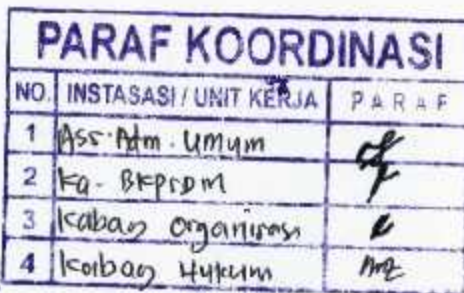 PARAF KOORDINASI
NO. INSTASASI / UNIT KERJA PARAF
1 Ass. Adm. Umum
2 Ka. BKPSDM
3 Kabag Organisasi
4 Kabag Hukum